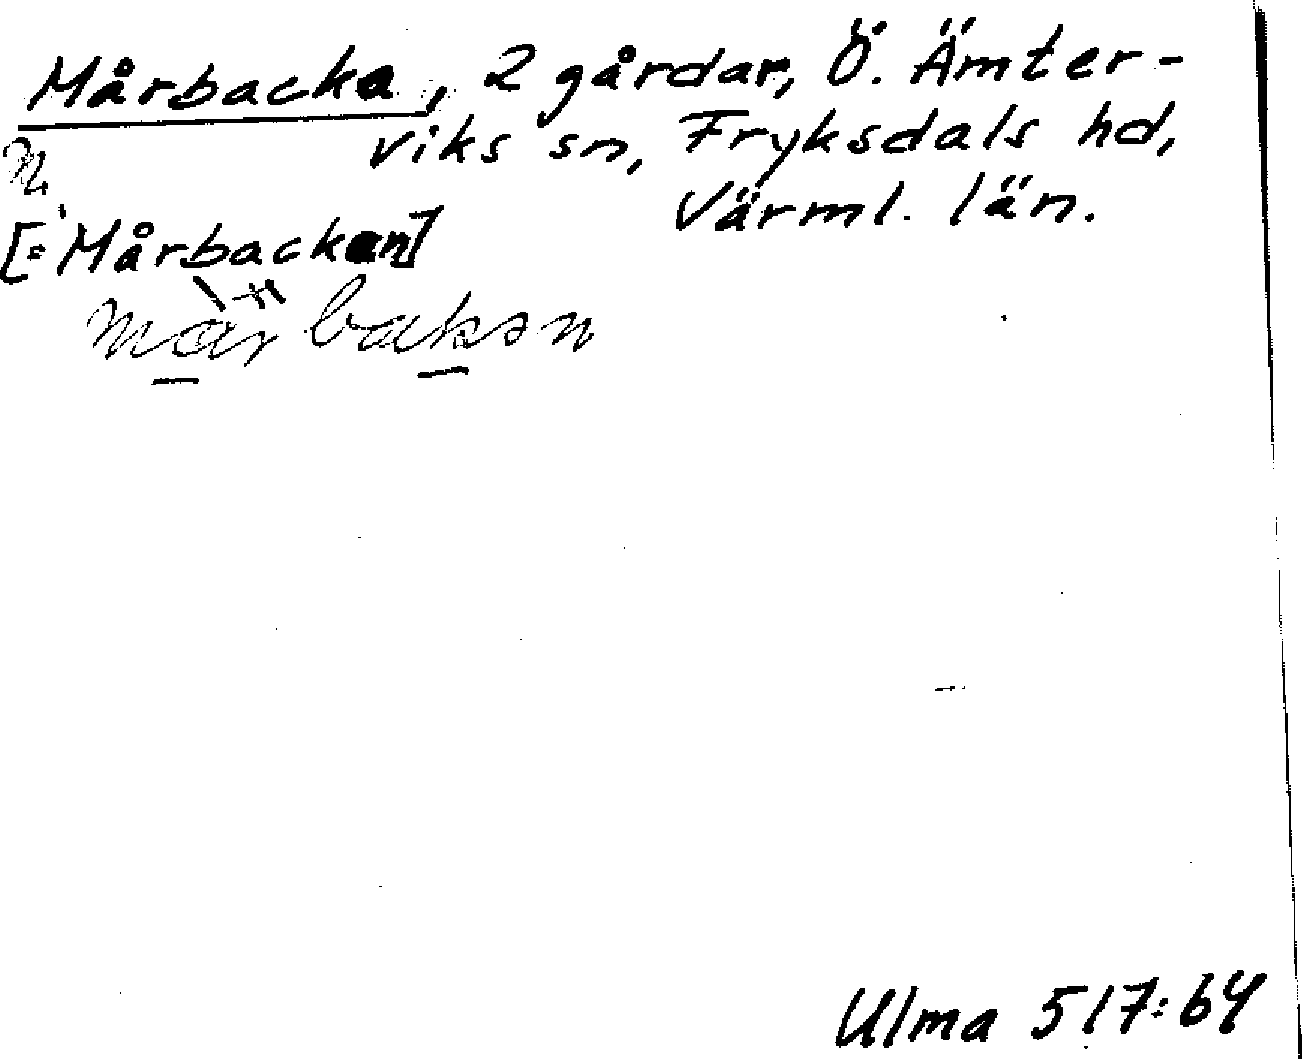 Mårbacka, 2 gårdar, Ö. Ämter-
viks sn, Fryksdals hd,
Värml. län.
n.
[='Mårbacken]
Ulma 517:64